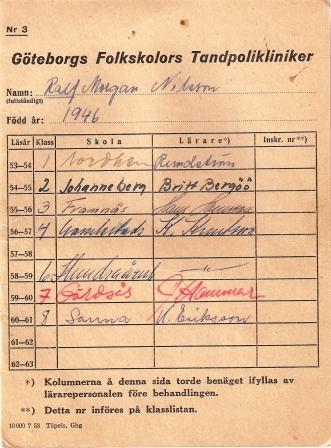 Nr 3
Göteborgs Folkskolors Tandpolikliniker
Namn: Ralf Morgan Nilsson
(fullständigt)
Född år: 1946
Läsår Klass Skola Lärare*) Inskr. nr**)
53–54 1 Nordhem Rundström
54–55 2 Johanneberg Britt Bergöö
55–56 3 Framnäs
56–57 4 K.
57–58
58–59 6 "
59–60 7 Hammar
60–61 8 Sanna U. Eriksson
61–62
62–63
*) Kolumnerna å denna sida torde benäget ifyllas av
lärarepersonalen före behandlingen.
**) Detta nr införes på klasslistan.
10 000 7 53 Töpels, Gbg